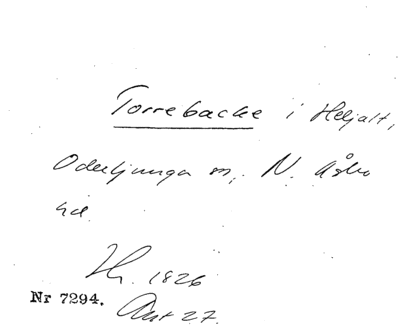 Torrebacke i Heljalt,
Oderljunga sn, N. Åsbo
hd.
Hr. 1826
Nr 7294. Ant 27.